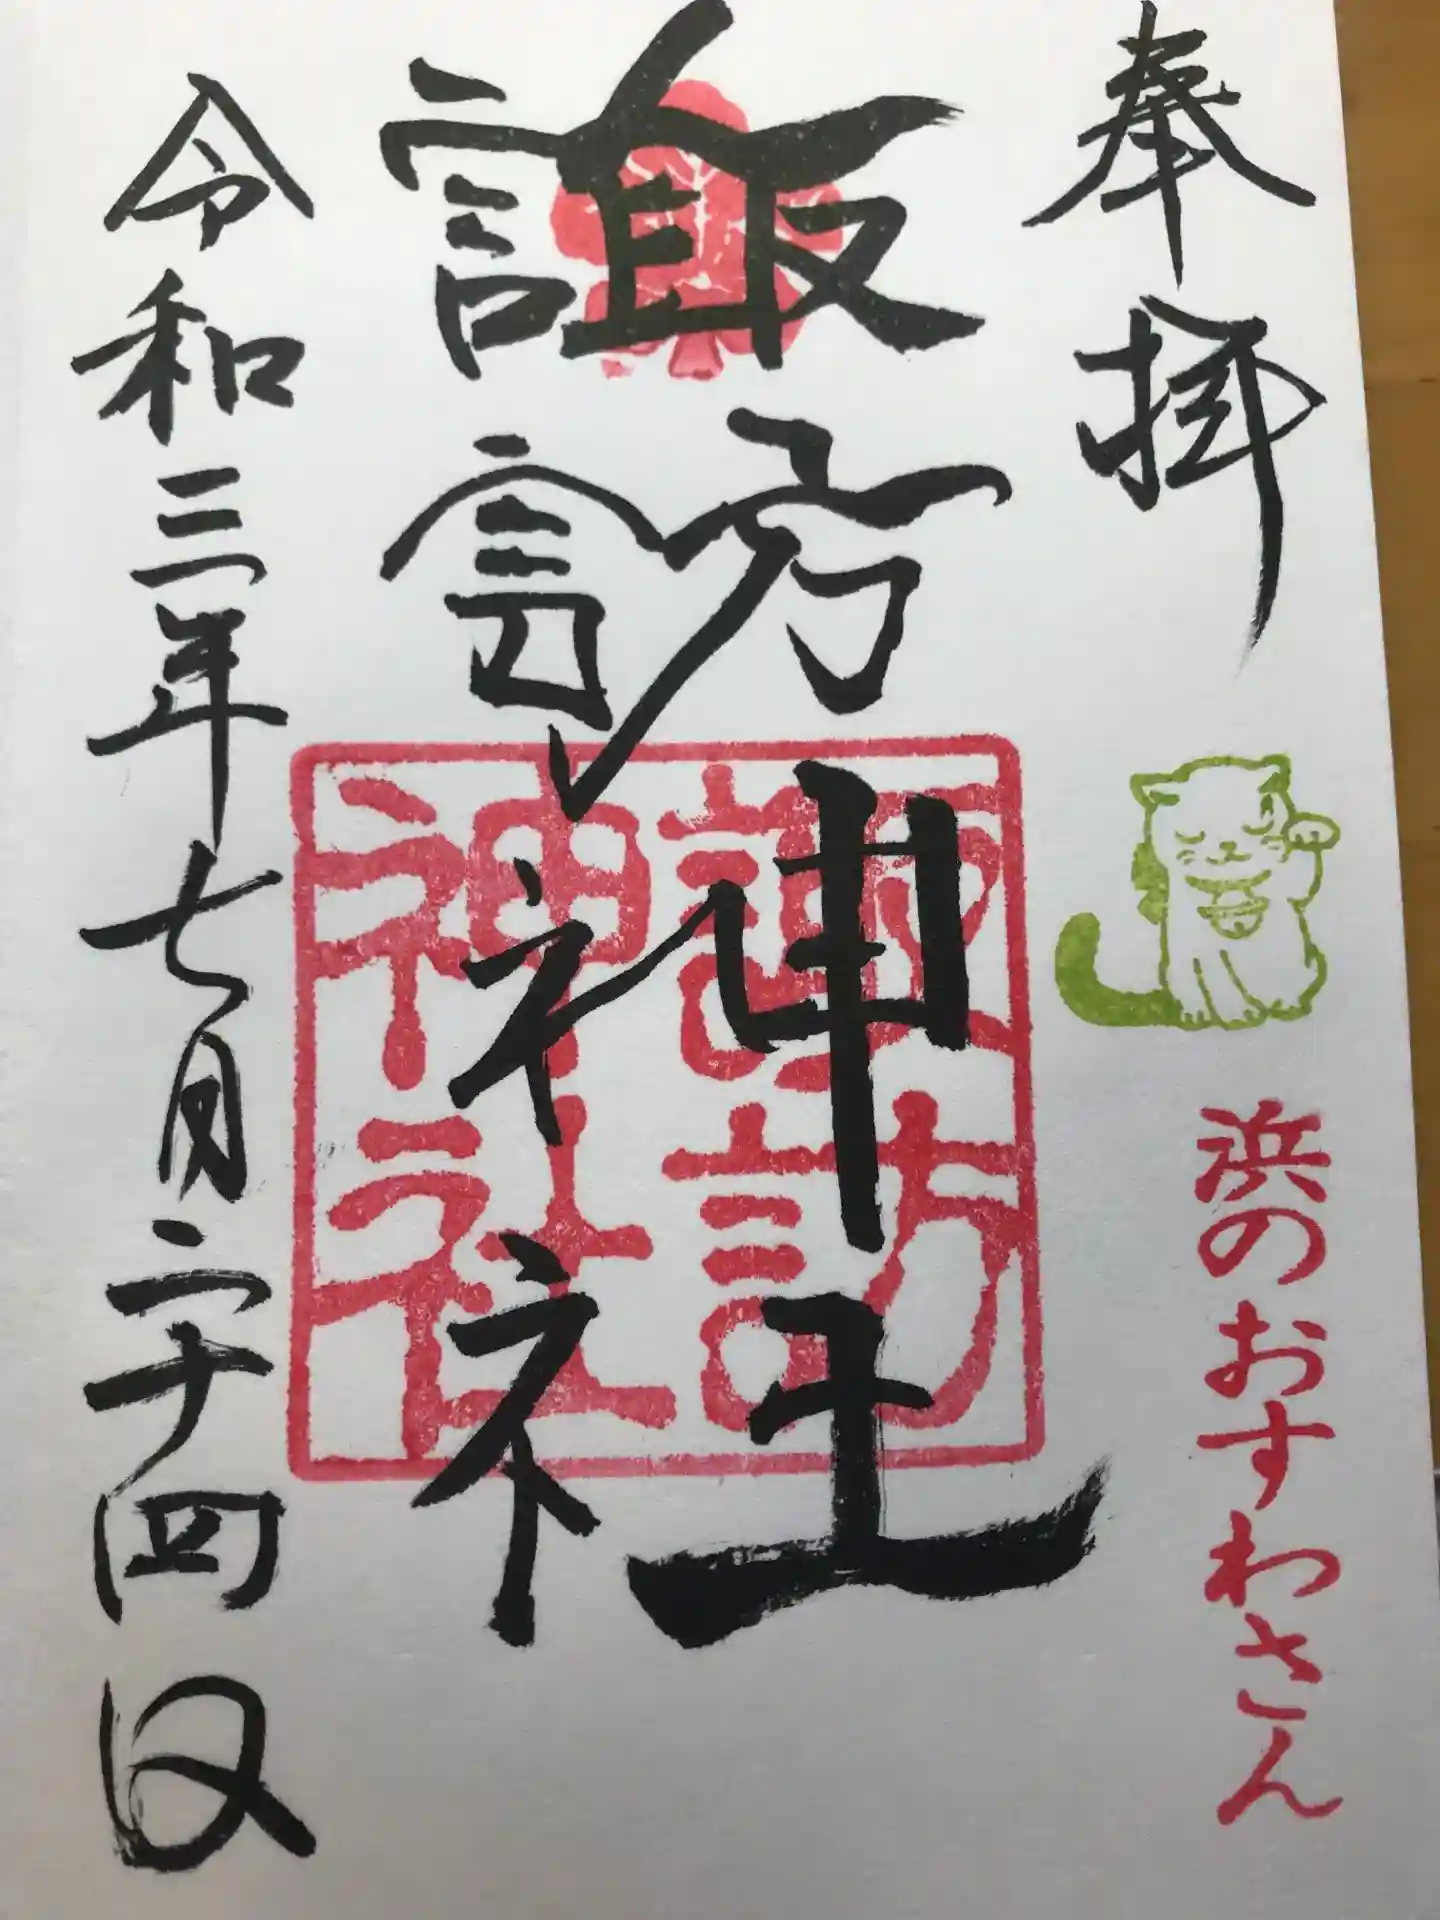 奉拝
浜のおすわさん
諏訪神社
諏訪
神社
令和三年七月二十四日